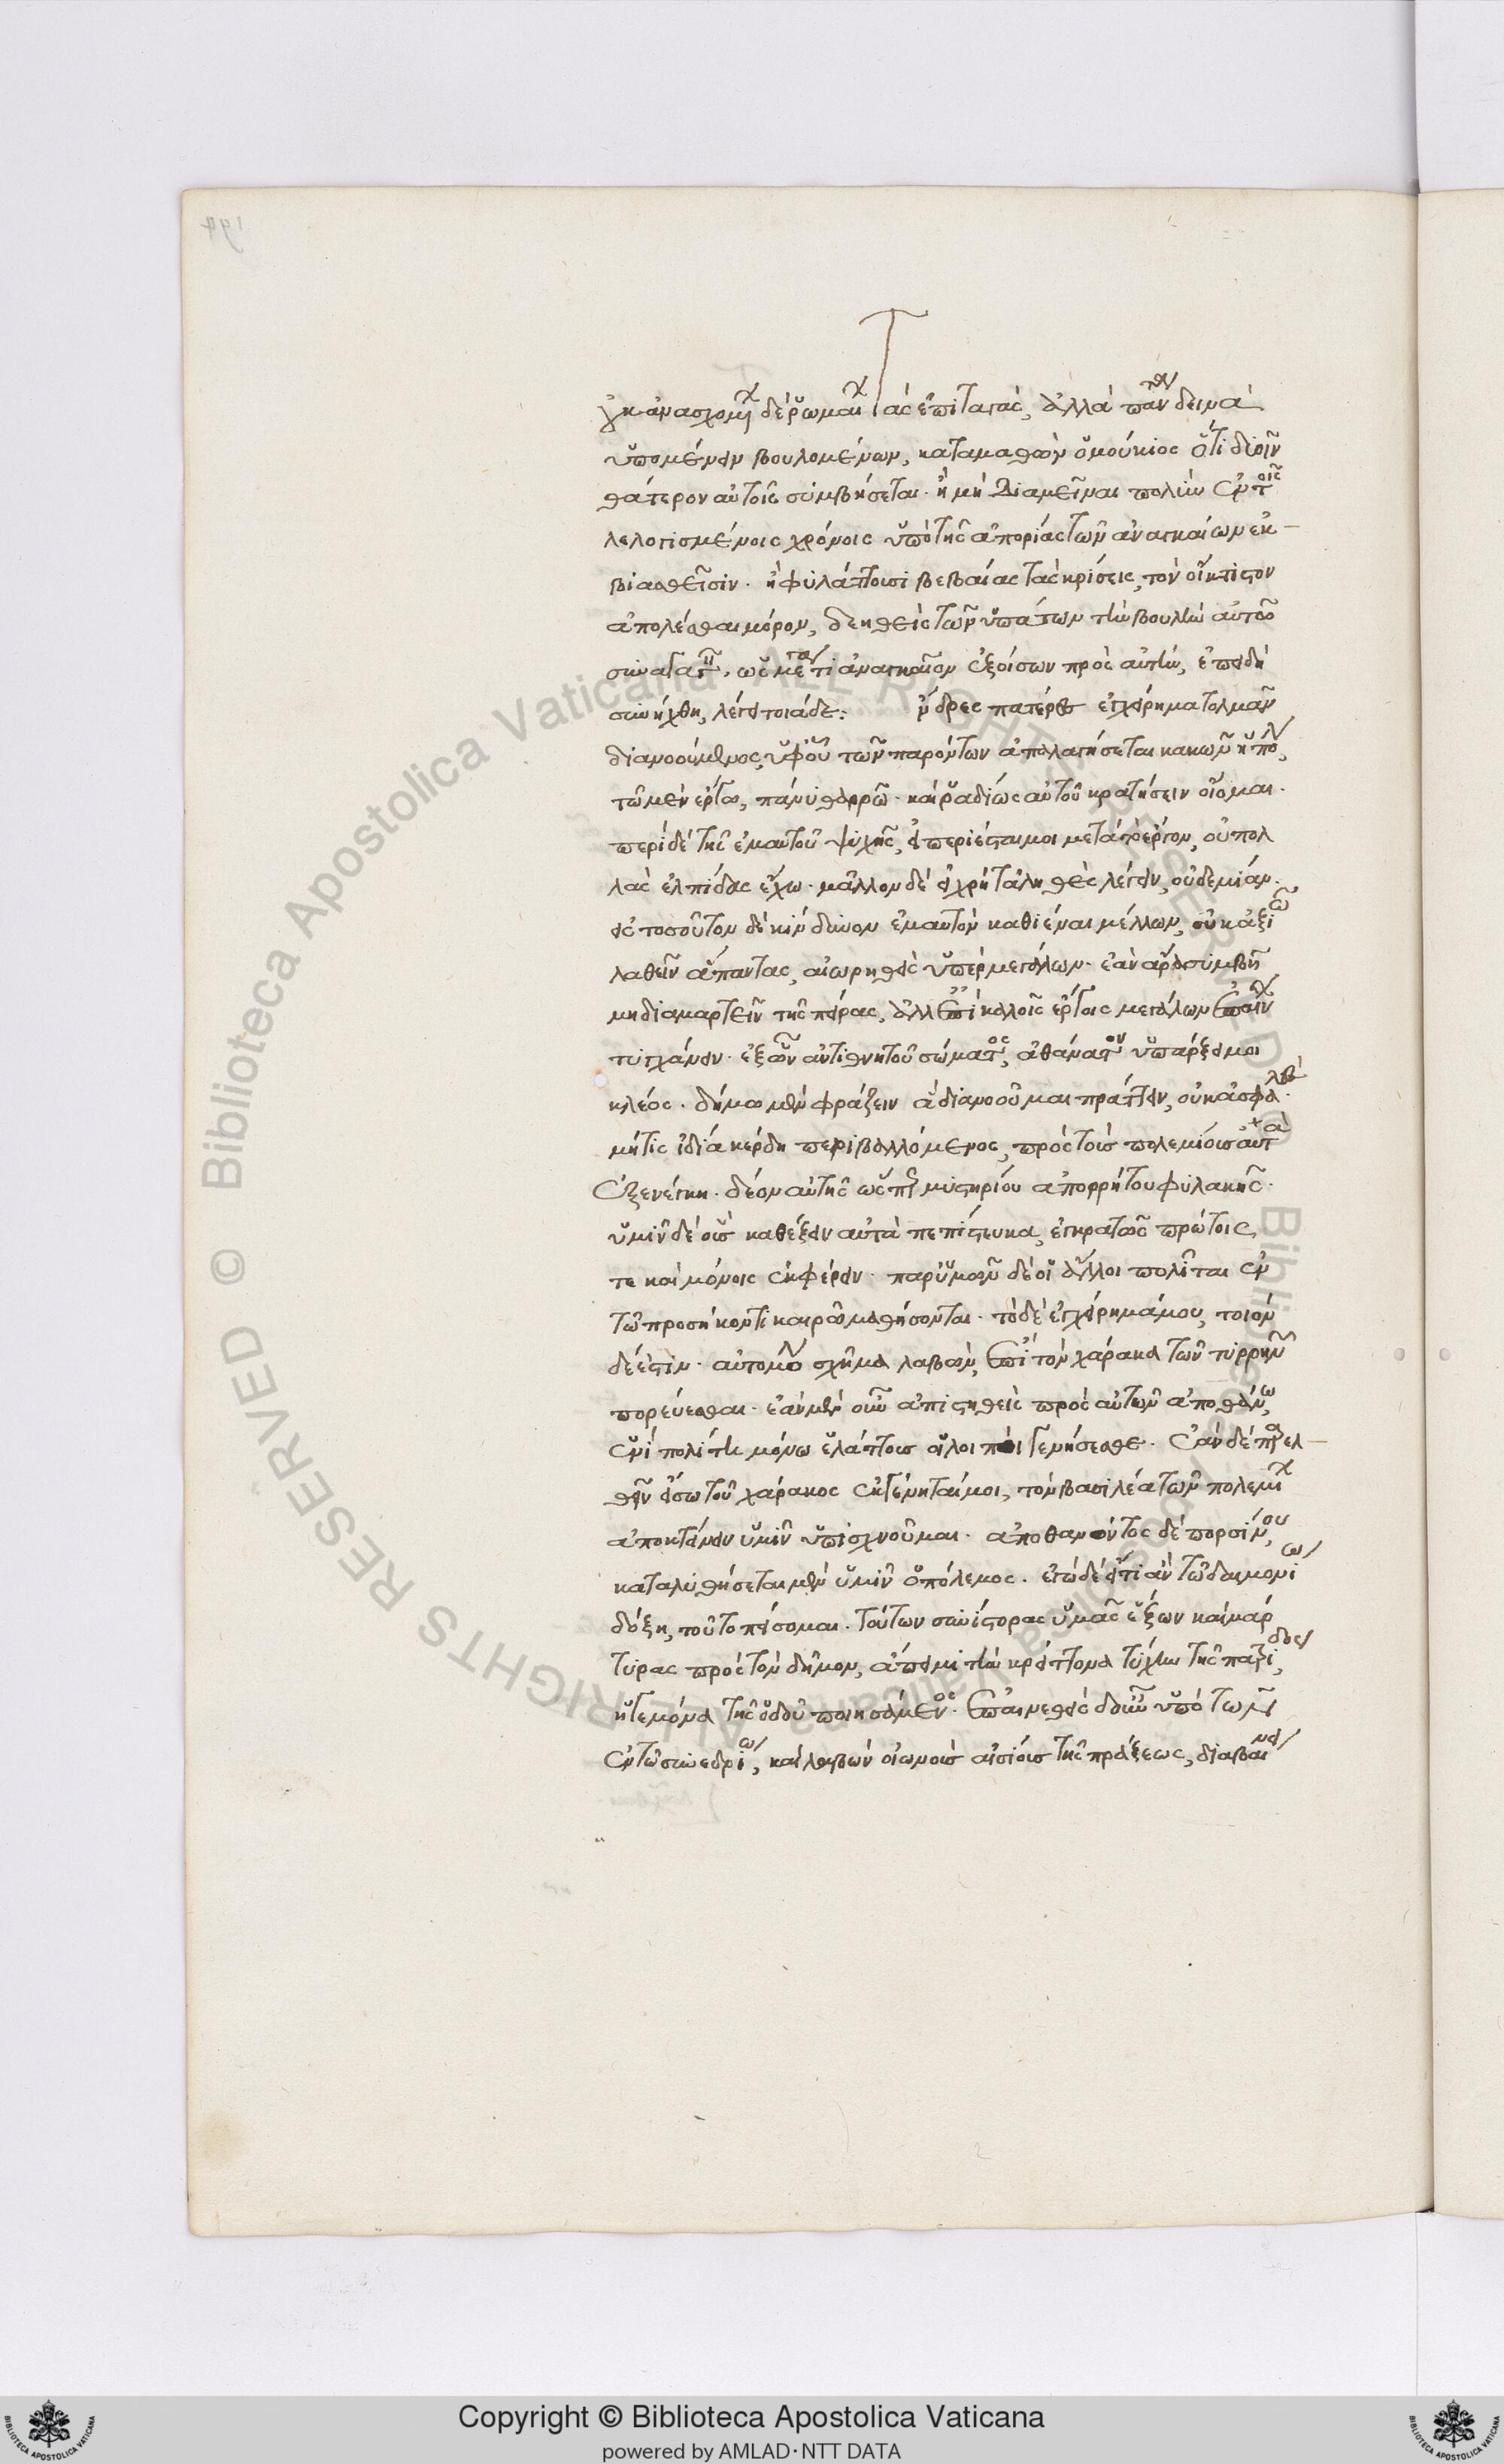 οὐκ ἀνασχομένων δὲ ῥωμαίων τὰς ἐπιταγάς, ἀλλὰ πάντα τὰ δεινὰ
ὑπομένειν βουλομένων, καταμαθὼν ὁ μούκιος ὅτι δυοῖν
θάτερον αὐτοῖς συμβήσεται. ἢ μὴ διαμεῖναι πολὺν ἐν τοῖς
λελογισμένοις χρόνοις ὑπὸ τῆς ἀπορίας τῶν ἀναγκαίων ἐκ
βιασθεῖσιν. ἢ φυλάττουσι βεβαίας τὰς κρίσεις, τὸν οἴκτιστον
ἀπολέσθαι μόρον, δεηθεὶς τῶν ὑπάτων τὴν βουλὴν αὐτῶ
συναγαγεῖν, ὡς μέγα τι ἀναγκαῖον ἐξοίσων πρὸς αὐτήν, ἐπειδὴ
συνήχθη, λέγει τοιάδε: νδρες πατέρες ἐγχείρημα τολμᾶν
διανοούμενος, ὑφ' οὗ τῶν παρόντων ἀπαλαγήσεται κακῶν ἡ πόλις,
τῶ μὲν ἔργω, πάνυ θαρρῶ. καὶ ῥαδίως αὐτοῦ κρατήσειν οἴομαι.
περὶ δὲ τῆς ἐμαυτοῦ ψυχῆς, εἰ περιέσται μοι μετὰ τὸ ἔργον, οὐ πολ
λὰς ἐλπίδας ἔχω. μᾶλλον δὲ εἰ χρὴ τἀληθὲς λέγειν, οὐδεμίαν.
εἰς τοσοῦτον δὴ κίνδυνον ἐμαυτὸν καθιέναι μέλλων, οὐκ ἀξιῶ
λαθεῖν ἅπαντας, αἰωρηθεὶς ὑπὲρ μεγάλων. ἐὰν ἄρα συμβῆ
μὴ διαμαρτεῖν τῆς πείρας, ἀλλ' ἐπὶ καλοῖς ἔργοις μεγάλων ἐπαίνων
τυγχάνειν. ἐξ ὧν ἀντὶ θνητοῦ σώματος, ἀθάνατον ὑπάρξει μοι
κλέος. δήμω μὲν φράζειν ἃ διανοοῦμαι πράττειν, οὐκ ἀσφαλὲς.
μήτις ἰδία κέρδη περιβαλλόμενος, πρὸς τοὺς πολεμίους αὐτὰ
ἐξενέγκη. δέον αὐτῆς ὥσπερ μυστηρίου ἀπορρήτου φυλακῆς.
ὑμῖν δὲ οὓς καθέξειν αὐτὰ πεπίστευκα, ἐγκρατῶς πρώτοις
τε καὶ μόνοις ἐκφέρειν. παρ' ὑμῶν δὲ οἱ ἄλλοι πολῖται ἐν
τῶ προσήκοντι καιρῶ μαθήσονται. τὸ δὲ ἐγχείρημά μου, τοιόν
δέ ἐστιν. αὐτομόλου σχῆμα λαβὼν, ἐπὶ τὸν χάρακα τῶν τυρρηνῶν
πορεύεσθαι. ἐὰν μὲν οὖν ἀπιστηθεὶς πρὸς αὐτῶν ἀποθάνω,
ἑνὶ πολίτη μόνω ἐλάττους οἱ λοιποὶ γενήσεσθε. ἐὰν δὲ παρελ
θεῖν εἴσω τοῦ χάρακος ἐκγένηταί μοι, τὸν βασιλέα τῶν πολεμίων
ἀποκτείνειν ὑμῖν ὑπισχνοῦμαι. ἀποθανόντος δὲ πορσίνου,
καταλυθήσεται μὲν ὑμῖν ὁ πόλεμος. ἐγὼ δὲ ὅτι ἂν τῶ δαιμονίω
δόξη, τοῦτο πείσομαι. τούτων συνίστορας ὑμᾶς ἔξων καὶ μάρ
τυρας πρὸς τὸν δῆμον, ἄπειμι τὴν κρείττονα τύχην τῆς πατρίδος
ἡγεμόνα τῆς ὁδοῦ ποιησάμενος. ἐπαινεθεὶς δ' οὖν ὑπὸ τῶν
ἐν τῶ συνεδρίω, καὶ λαβὼν οἰωνοὺς αἰσίους τῆς πράξεως, διαβαίνει
Copyright © Biblioteca Apostolica Vaticana
powered by AMLAD·NTT DATA